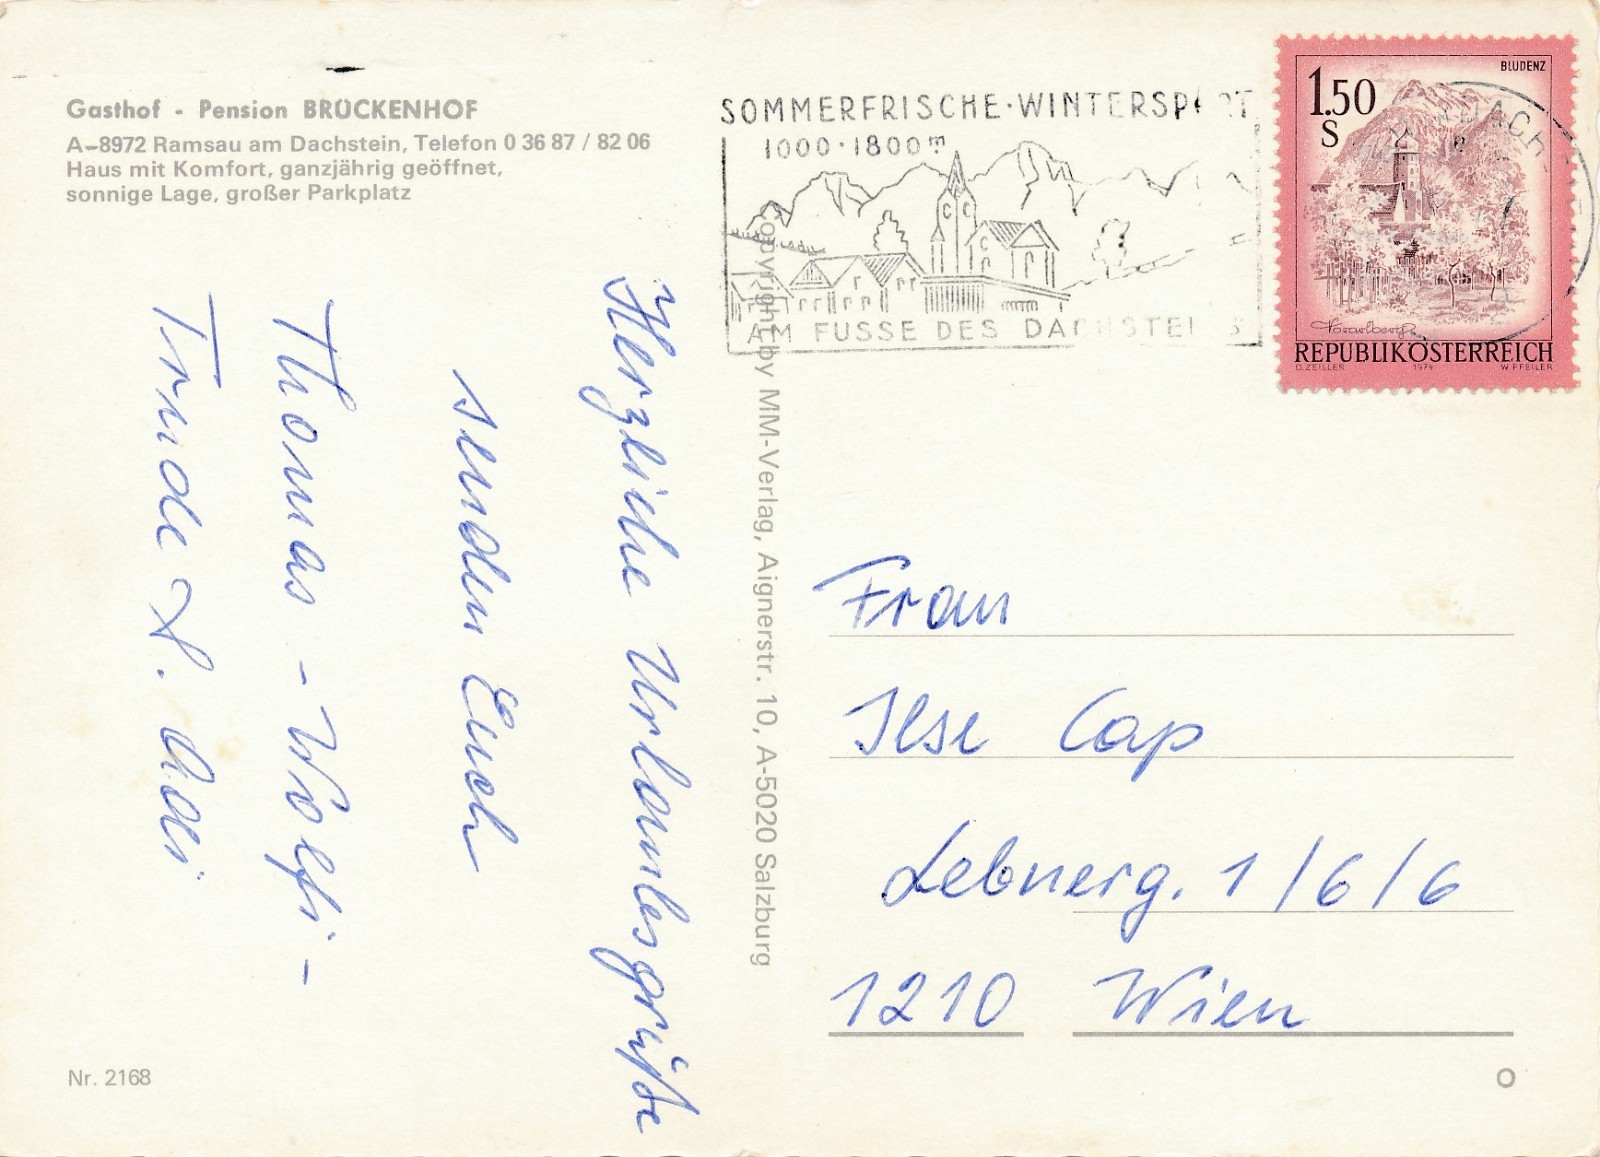 Gasthof - Pension BRÜCKENHOF
A-8972 Ramsau am Dachstein, Telefon 0 36 87 / 82 06
Haus mit Komfort, ganzjährig geöffnet,
sonnige Lage, großer Parkplatz
Herzliche Urlaubsgrüße
senden Euch
Thomas - Wolfi -
Trude
Nr. 2168
Copyright by MM-Verlag, Aignerstr. 10, A-5020 Salzburg
SOMMERFRISCHE·WINTERSPORT
1000·1800m
AM FUSSE DES DACHSTEINS
BLUDENZ
1.50
S
Vorarlberg
REPUBLIK ÖSTERREICH
O. ZEILLER 1974 W. PFEILER
Frau
Ilse Cap
Lebnerg. 1/6/6
1210 Wien